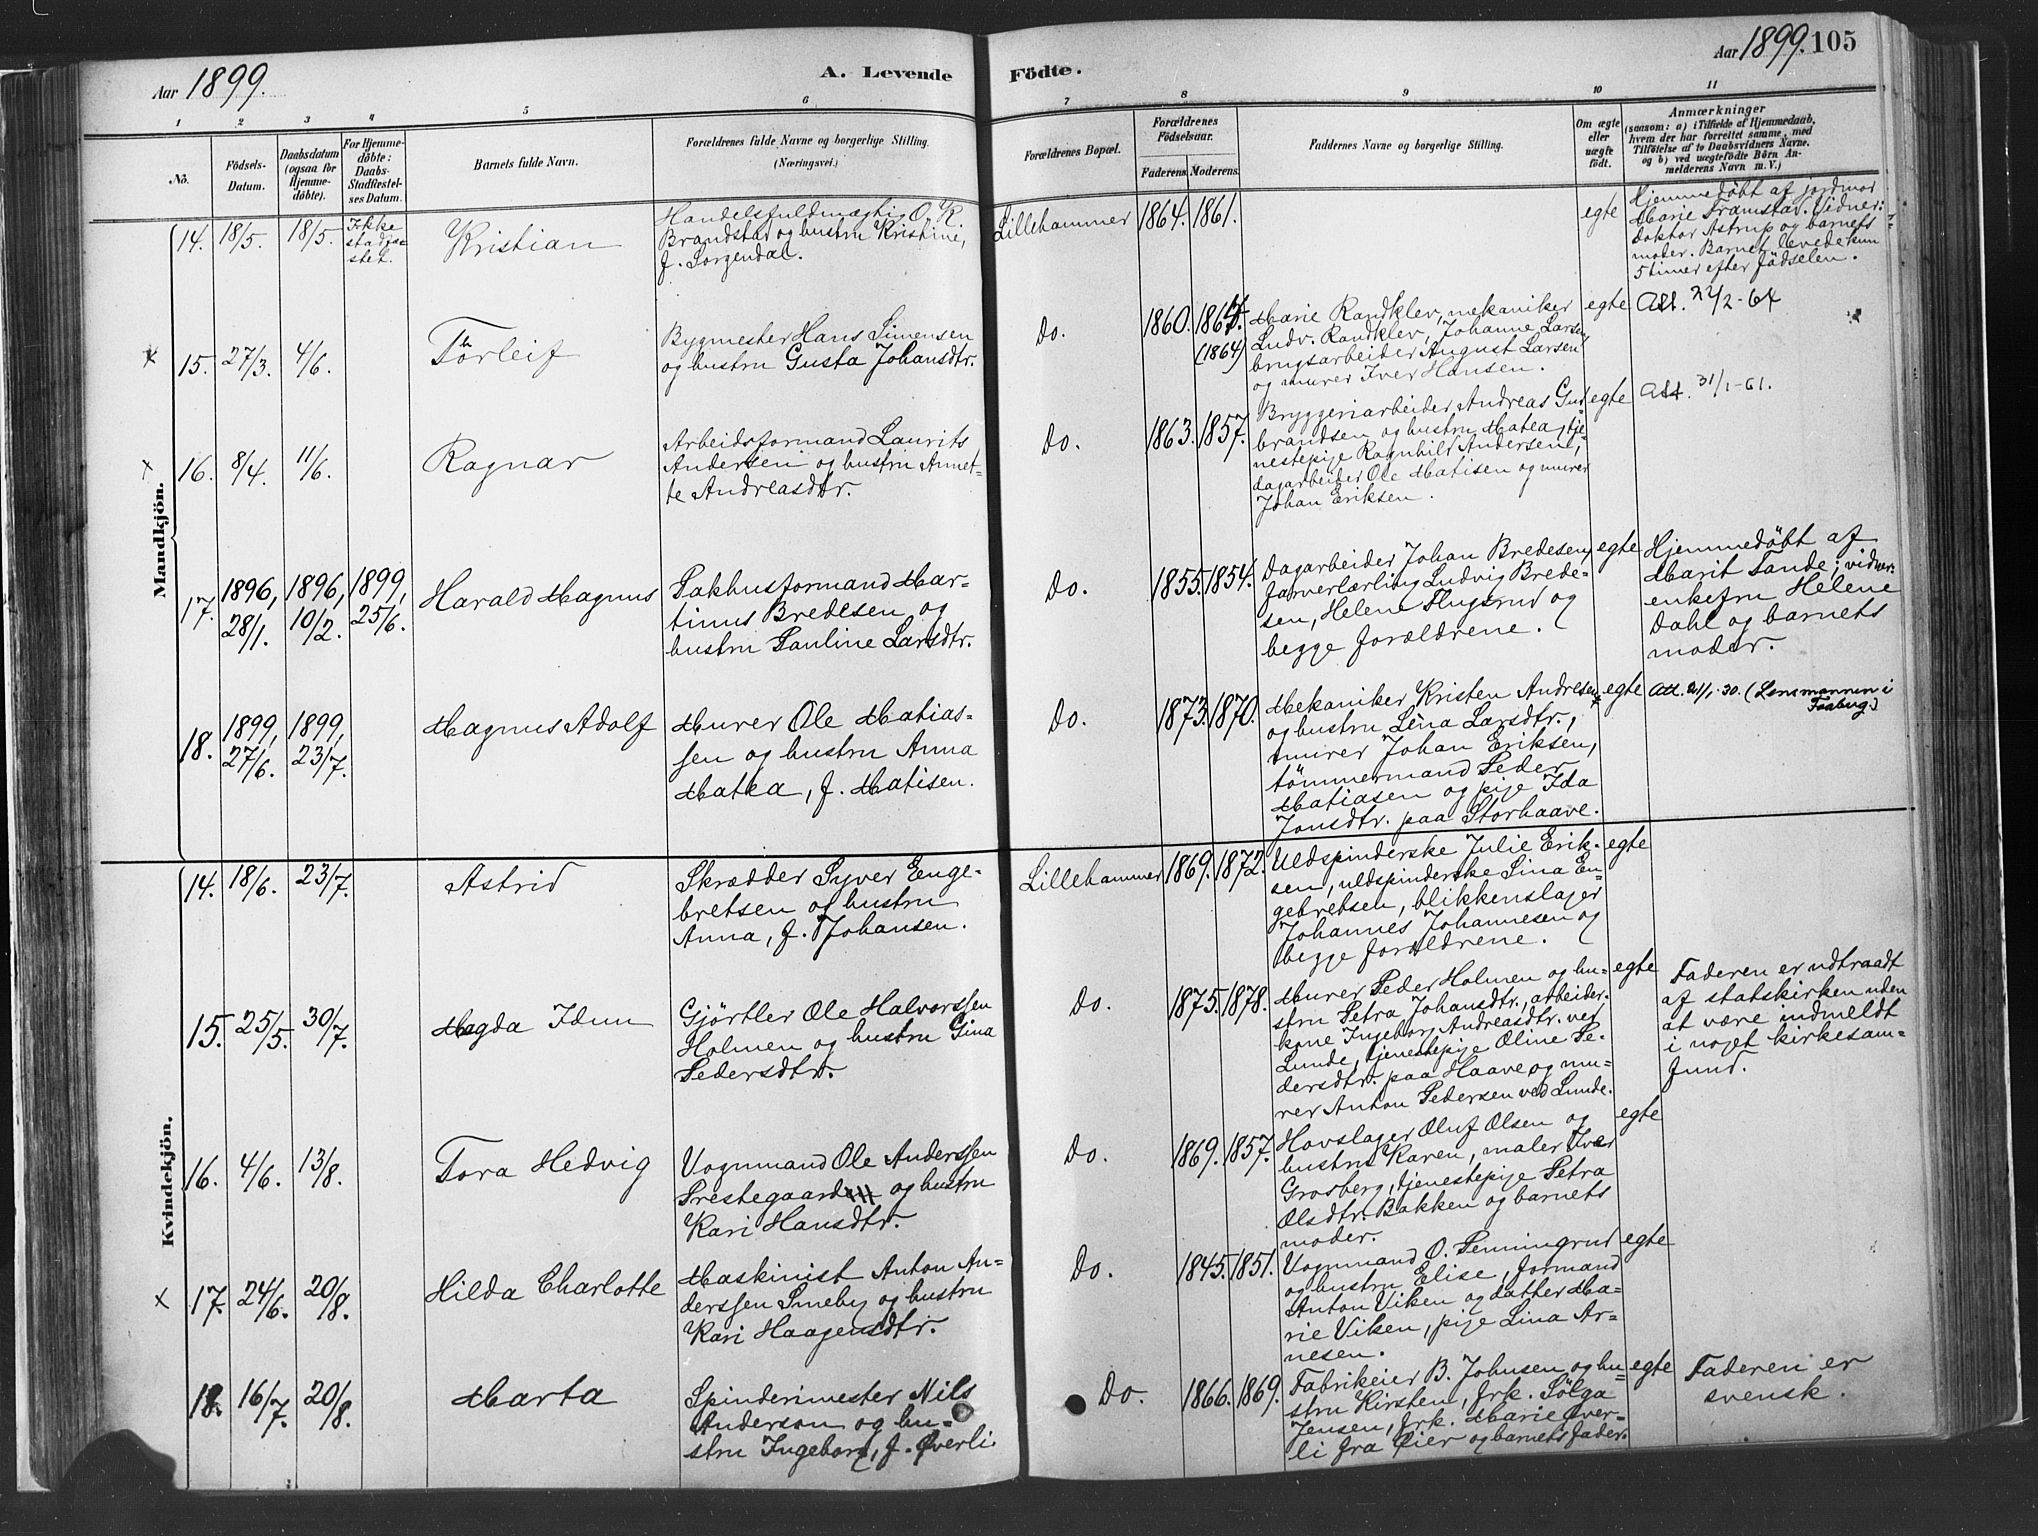 Aar 1899.
A. Levende
Födte.
Aar 1899. 105
1 2 3 4 5 6 7 8 9 10 11
No.
Födsels-
Datum.
Daabsdatum
(ogsaa for
Hjemme-
döbte).
For Hjemme-
döbte:
Daabs-
Stadfæstel-
ses Datum.
Barnets fulde Navn.
Forældrenes fulde Navne og borgerlige Stilling.
(Næringsvei.)
Forældrenes Bopæl.
Forældrenes
Födselsaar.
Faderens. Moderens.
Faddernes Navne og borgerlige Stilling.
Om ægte
eller
uægte
födt.
Anmærkninger
(saasom: a) i Tilfælde af Hjemmedaab,
hvem der har forrettet samme, med
Tilföielse af to Daabsvidners Navne.
og b) ved uægtefödte Börn An-
melderens Navn m. V.)
Mandkjön.
14. 18/5. 18/5.
Ikke
stadfæ-
stet.
Kristian
Handelsfuldmægtig O. K.
Brandstad og hustru Kristine,
f. Sorgendal.
Lillehammer 1864. 1861.
egte
Hjemmedøbt af jordmor
Marie Framstad. Vidner:
Doktor Astrup og barnets
moder. Barnet levede kun
5 timer efter fødselen.
x 15. 27/3. 4/6.
Torleif
Bygmester Hans Simensen
og hustru Gusta Johansdtr.
Do. 1860. 1864.
(1864)
Marie Randklev, mekaniker
Ludv. Randklev, Johanne Larsen
brugsarbeider August Larsen
og murer Iver Hansen.
egte
Att. 22/2-64
x 16. 8/4. 11/6.
Ragnar
Arbeidsformand Laurits
Andersen og hustru Annet-
te Andreasdtr.
Do. 1863. 1857.
Bryggeriarbeider Andreas Gud-
brandsen og hustru Matea, tje-
nestepige Ragnhild Andersen,
dagarbeider Ole Matisen og murer
Johan Eriksen.
egte
Att. 31/1-61.
17.
1896,
28/1.
1896,
10/2.
1899,
25/6.
Harald Magnus
Pakhusformand Mar-
tinus Bredesen og
hustru Pauline Larsdtr.
Do. 1855. 1854.
Dagarbeider Johan Bredesen,
farverlærling Ludvig Brede-
sen, Helene Flugsrud og
begge forældrene.
egte
Hjemmedøbt af
Marit Sande; vidner:
enkefru Helene
Dahl og barnets
moder.
18.
1899,
27/6.
1899,
23/7.
Magnus Adolf
Murer Ole Matias-
sen og hustru Anna
Matea, f. Matisen.
Do. 1873. 1870.
Mekaniker Kristen Andresen
og hustru Lena Larsdtr.,
murer Johan Eriksen,
tømmermand Peder
Matiasen og pige Ida
Jonsdtr. paa Storhaave.
egte
Att. 21/1-30. (Lensmannen i
Faaberg.)
Kvindekjön.
14. 18/6. 23/7.
Astrid
Skrædder Syver Enge-
bretsen og hustru
Anna, f. Johansen.
Lillehammer 1869. 1872.
Uldspinderske Julie Erik-
sen, uldspinderske Sina En-
gebretsen, blikkenslager
Johannes Johannesen og
begge forældrene.
egte
15. 25/5. 30/7.
Magda Idun
Gjørtler Ole Halvorssen
Holmen og hustru Gina
Pedersdtr.
Do. 1875. 1878.
Murer Peder Holmen og hu-
stru Petra Johansdtr., arbeider-
kone Ingeborg Andreasdtr. ved
Lunde, tjenestepige Oline Pe-
dersdtr. paa Haave og mu-
rer Anton Pedersen ved Lunde.
egte
Faderen er udtraadt
af statskirken uden
at være indmeldt
i noget kirkesam-
fund.
16. 4/6. 13/8.
Tora Hedvig
Vognmand Ole Anderssen
Prestegaard og hustru
Kari Hansdtr.
Do. 1869. 1857.
Hovslager Oluf Olsen og
hustru Karen, maler Ivar
Grosberg, tjenestepige Petra
Olsdtr. Bakken og barnets
moder.
egte
x 17. 24/6. 20/8.
Hilda Charlotte
Maskinist Anton An-
derssen Smeby og hustru
Kari Haagensdtr.
Do. 1845. 1851.
Vognmand O. Senningrud
og hustru Elise, formand
Anton Viken og datter Ma-
rie Viken, pige Lina Ar-
nesen.
egte
18. 16/7. 20/8.
Marta
Spinderimester Nils
Anderson og hu-
stru Ingeborg, f. Øverli
Do. 1866. 1869.
Fabrikeier B. Johnsen og hu-
stru Kirsten, frk. Sølga
Jensen, frk. Marie Øver-
li fra Øier og barnets fader.
egte
Faderen er
svensk.